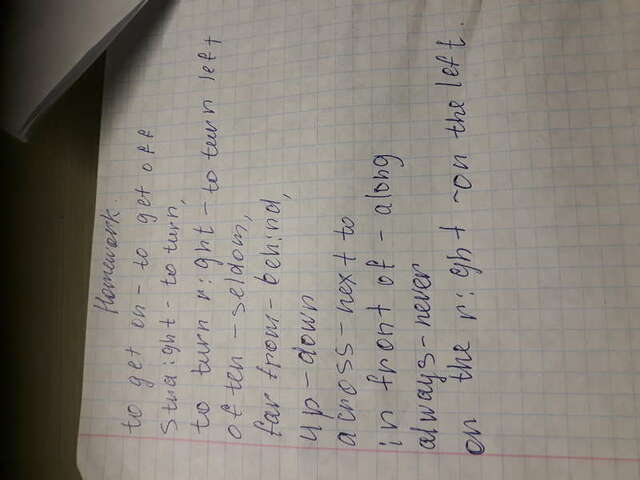 Homework.
to get on - to get off
straight - to turn,
to turn right - to turn left
often - seldom,
far from - behind,
up - down
across - next to
in front of - along
always - never
on the right - on the left.